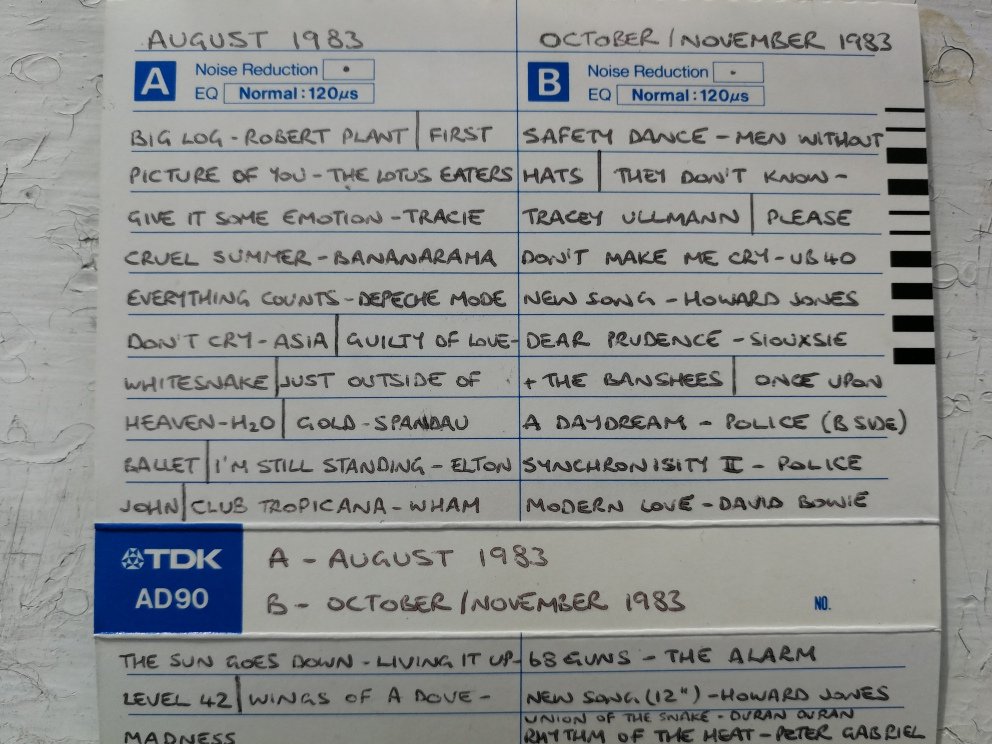 AUGUST 1983
A
Noise Reduction •
EQ Normal:120μs
BIG LOG - ROBERT PLANT | FIRST
PICTURE OF YOU - THE LOTUS EATERS
GIVE IT SOME EMOTION - TRACIE
CRUEL SUMMER - BANANARAMA
EVERYTHING COUNTS - DEPECHE MODE
DON'T CRY - ASIA | GUILTY OF LOVE -
WHITESNAKE | JUST OUTSIDE OF
HEAVEN - H2O | GOLD - SPANDAU
BALLET | I'M STILL STANDING - ELTON
JOHN | CLUB TROPICANA - WHAM
OCTOBER / NOVEMBER 1983
B
Noise Reduction •
EQ Normal:120μs
SAFETY DANCE - MEN WITHOUT
HATS | THEY DON'T KNOW -
TRACEY ULLMANN | PLEASE
DON'T MAKE ME CRY - UB40
NEW SONG - HOWARD JONES
DEAR PRUDENCE - SIOUXSIE
+ THE BANSHEES | ONCE UPON
A DAYDREAM - POLICE (B SIDE)
SYNCHRONISITY II - POLICE
MODERN LOVE - DAVID BOWIE
TDK
AD90
A - AUGUST 1983
B - OCTOBER / NOVEMBER 1983
NO.
THE SUN GOES DOWN - LIVING IT UP -
LEVEL 42 | WINGS OF A DOVE -
MADNESS
68 GUNS - THE ALARM
NEW SONG (12") - HOWARD JONES
UNION OF THE SNAKE - DURAN DURAN
RHYTHM OF THE HEAT - PETER GABRIEL